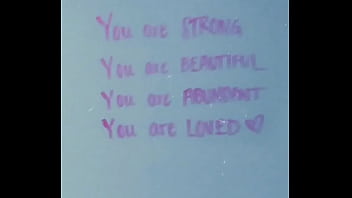 You are STRONG
You are BEAUTIFUL
You are ABUNDANT
You are LOVED ♡